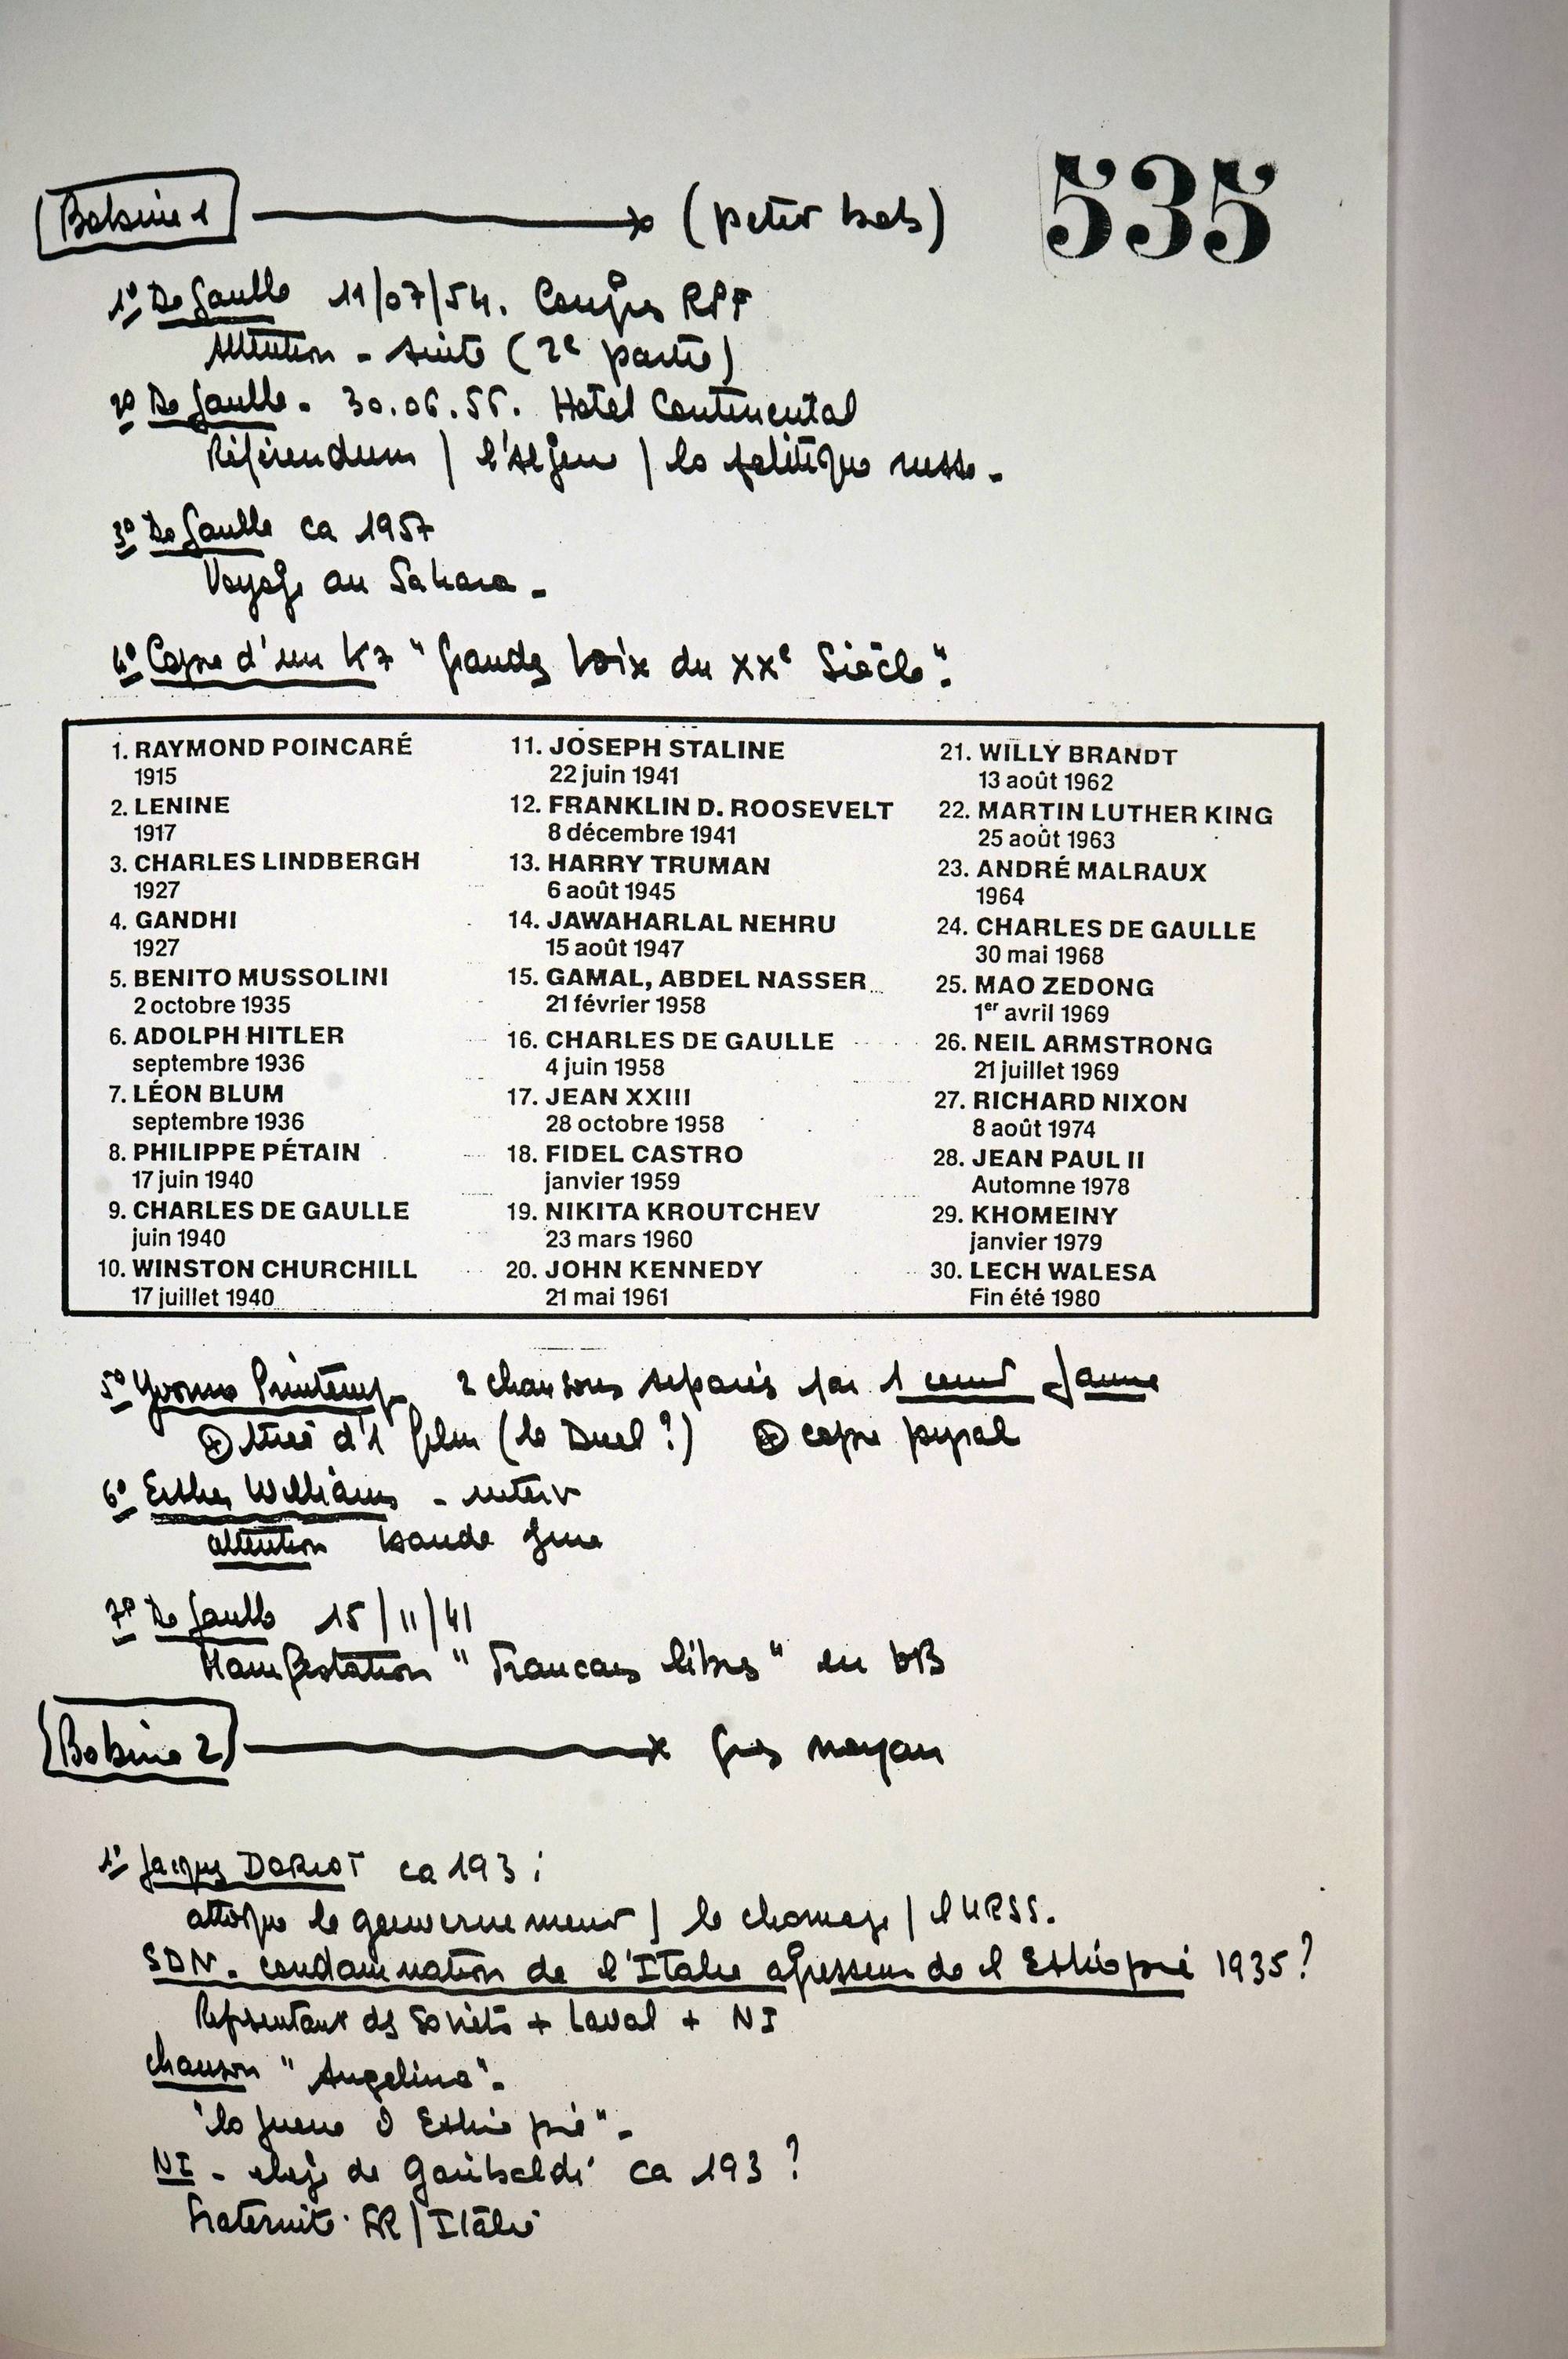 535
Bobine 1 (peter bob)
1° De Gaulle 11/07/54. Congrès RPF
Attention - suite (2e partie)
2° De Gaulle. 30.06.55. Hotel Continental
Référendum / l'Algérie / la politique russe.
3° De Gaulle ca 1957
Voyage au Sahara.
4° Copie d'une K7 "Grandes Voix du XXe Siècle".
1. RAYMOND POINCARÉ
1915
2. LENINE
1917
3. CHARLES LINDBERGH
1927
4. GANDHI
1927
5. BENITO MUSSOLINI
2 octobre 1935
6. ADOLPH HITLER
septembre 1936
7. LÉON BLUM
septembre 1936
8. PHILIPPE PÉTAIN
17 juin 1940
9. CHARLES DE GAULLE
juin 1940
10. WINSTON CHURCHILL
17 juillet 1940
11. JOSEPH STALINE
22 juin 1941
12. FRANKLIN D. ROOSEVELT
8 décembre 1941
13. HARRY TRUMAN
6 août 1945
14. JAWAHARLAL NEHRU
15 août 1947
15. GAMAL, ABDEL NASSER
21 février 1958
16. CHARLES DE GAULLE
4 juin 1958
17. JEAN XXIII
28 octobre 1958
18. FIDEL CASTRO
janvier 1959
19. NIKITA KROUTCHEV
23 mars 1960
20. JOHN KENNEDY
21 mai 1961
21. WILLY BRANDT
13 août 1962
22. MARTIN LUTHER KING
25 août 1963
23. ANDRÉ MALRAUX
1964
24. CHARLES DE GAULLE
30 mai 1968
25. MAO ZEDONG
1er avril 1969
26. NEIL ARMSTRONG
21 juillet 1969
27. RICHARD NIXON
8 août 1974
28. JEAN PAUL II
Automne 1978
29. KHOMEINY
janvier 1979
30. LECH WALESA
Fin été 1980
5° Yvonne Printemps 2 chansons séparés par 1 jaune
tiré d'1 film (le Duel ?) copie pyral
6° Esther Williams - interv
attention bande fine
7° De Gaulle 15/11/41
Manifestation "Francais libres" en GB
Bobine 2 gros noyau
1° Jacques DORIOT ca 193
attaque le gouvernement / le chomage / l'URSS.
SDN. condamnation de l'Italie agresseur de l'Ethiopie 1935?
Représentant des Soviets + Laval + NI
chanson "Angelina".
"la guerre d'Ethiopie".
NI - eloge de Garibaldi ca 193?
Fraternité FR / Italie